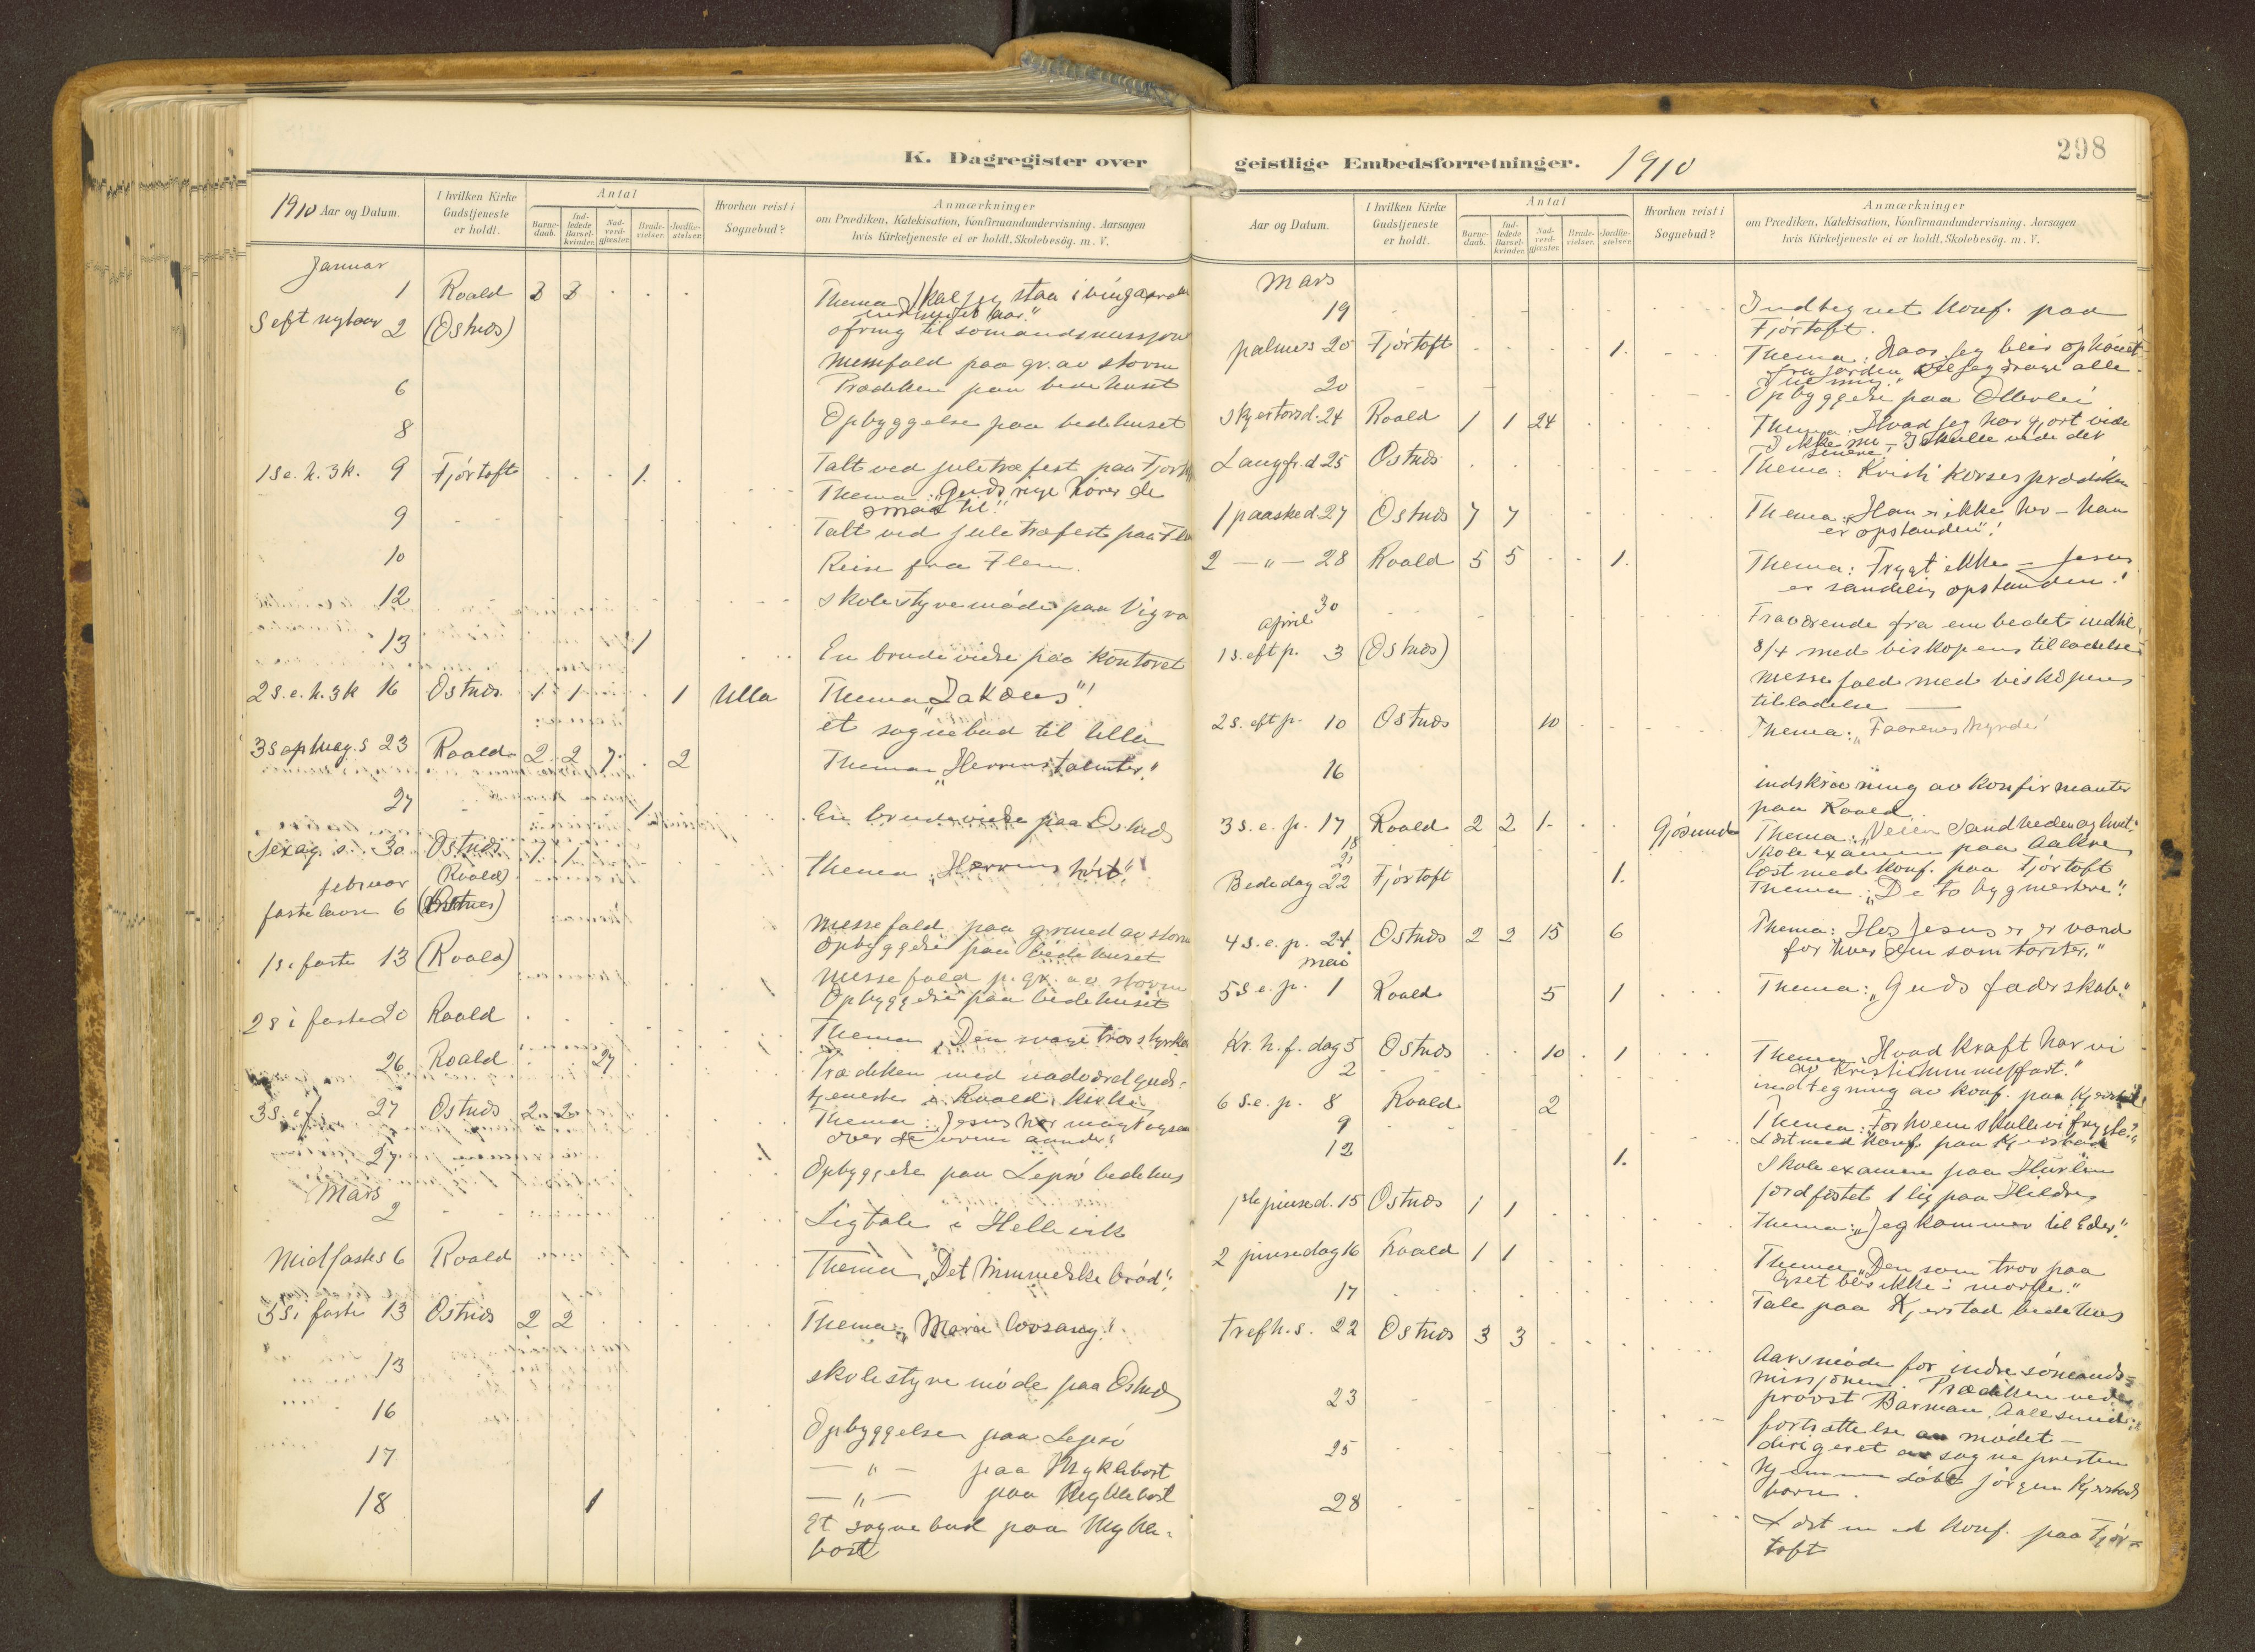 K. Dagregister over
1910 Aar og Datum.
I hvilken Kirke Gudstjeneste er holdt.
Antal
Barne-daab.
Ind-ledede Barsel-kvinder.
Nad-verd-gjester.
Brude-vielser.
Jordfæ-stelser.
Hvorhen reist i Sognebud?
Anmærkninger
om Prædiken, Katekisation, Konfirmandundervisning. Aarsagen
hvis Kirketjeneste ei er holdt, Skolebesøg. m. V.
Januar
1 Roald 3 3 Thema Skal jeg staa i vingaarden
ofring til sømandsmissjon
S eft nytaar 2 (Østnæs)
Messefald paa gr. av storm
6 Prædiken paa bedehuset
8 Opbyggelse paa bedehuset
1 s e. h. 3 k. 9 Fjørtoft 1. Talt ved juletræfest paa Fjørtoft
Thema: "Guds rige hører de
smaa til."
9 Talt ved juletræfest paa Flem
10 Reise fra Flem.
12 skolestyremøde paa Vigra
13 1 En brudevielse paa kontoret
2 s. e. h. 3 k 16 Østnæs 1 1 1 Ulla Thema "Zakæus"!
et sognebud til Ulla
3 s 23 Roald 2 2 7 2 Thema "Herrens talenter."
27 1 En brudevielse paa Østnæs
sexag. s. 30 Østnæs 1 1 Thema "Herrens høst."
februar (Roald)
fastelavn 6
Messefald paa grund av storm
Opbyggelse paa bedehuset
1 s i faste 13 (Roald) Messefald p. gr. av storm
Opbyggelse paa bedehuset
2 s i faste 20 Roald Thema "Den svage tros styrke
26 Roald 27 Prædiken med nadverdguds-
tjeneste i Roald kirke
3 s. e f. 27 Østnæs 2 2 Thema: Jesus har magt ogsaa
over de urene aander.
27 Opbyggelse paa Lepsø bedehus
Mars
2 Ligtale i Hellevik
Midfaste s 6 Roald Thema "Det himmelske brød."
5 s i faste 13 Østnæs 2 2 Thema: "Maria lovsang."
13 skolestyremøde paa Østnæs
16 Opbyggelse paa Lepsø
17 — " — paa Myklebost
18 1 — " — paa Myklebost
Et sognebud paa Mykle-
bost
geistlige Embedsforretninger. 1910
298
Aar og Datum.
I hvilken Kirke Gudstjeneste er holdt.
Antal
Barne-daab.
Ind-ledede Barsel-kvinder.
Nad-verd-gjester.
Brude-vielser.
Jordfæ-stelser.
Hvorhen reist i Sognebud?
Anmærkninger
om Prædiken, Katekisation, Konfirmandundervisning. Aarsagen
hvis Kirketjeneste ei er holdt, Skolebesøg. m. V.
Mars
19 Indtegnet konf. paa
Fjørtoft.
palmes 20 Fjørtoft 1. Thema: Naar jeg blir ophøiet
fra jorden vil jeg drage alle
til mig."
20 Opbyggelse paa
skjærtorsd. 24 Roald 1 1 24 Thema: Hvad jeg har gjort vide
I ikke nu – I skulle vide det
senere."
Langfr. d 25 Østnæs Thema: Kristi korses prædiken
1 paasked 27 Østnæs 7 7 Thema: "Han er ikke her – han
er opstanden"!
2 — " — 28 Roald 5 5 1. Thema: Frygt ikke – Jesus
er sandelig opstanden!
30 Fraværende fra embedet indtil
8/4 med biskopens tilladelse
april
1 s. eft p. 3 (Østnæs) Messefald med biskopens
tilladelse —
2 s. eft p. 10 Østnæs 10 Thema: "Faarenes hyrde!
16 indskrivning av konfirmanter
paa Roald
3 s. e. p. 17 Roald 2 2 1 Gjøsund Thema: "Veien sandheden og livet."
18 Skoleexamen paa
21 læst med konf. paa Fjørtoft
Bededag 22 Fjørtoft 1. Thema: "De to bygmestere."
4 s. e. p. 24 Østnæs 2 2 15 6 Thema: Hos Jesus er er vand
for hver den som tørster."
mai
5 s e. p. 1 Roald 5 1 Thema: "Guds faderskab."
Kr. h. f. dag 5 Østnæs 10 1 Thema: Hvad kraft har vi
av Kristi himmelfart."
2 indtegning av konf. paa Kjerstad
6 s. e. p. 8 Roald 2 Thema: For hvem skulle vi frygte?"
9 Læst med konf. paa Kjerstad
12 1. Skoleexamen paa
jordfæstet 1 lig paa Hildre
1ste pinsed. 15 Østnæs 1 1 Thema: "Jeg kommer til Eder."
2 pinsedag 16 Roald 1 1 Thema "Den som tror paa
lyset blir ikke i mørke."
17 Tale paa Kjerstad bedehus
trefh. s. 22 Østnæs 3 3 Aarsmøde for indre sømands-
missjonen. Prædiken ved
provst Barman, Aalesund.
23 fortsættelse av mødet –
dirigeret av sognepresten
25 Hjemmedøbt Jørgen Kjerstads
barn.
28 Læst med konf. paa Fjør-
toft